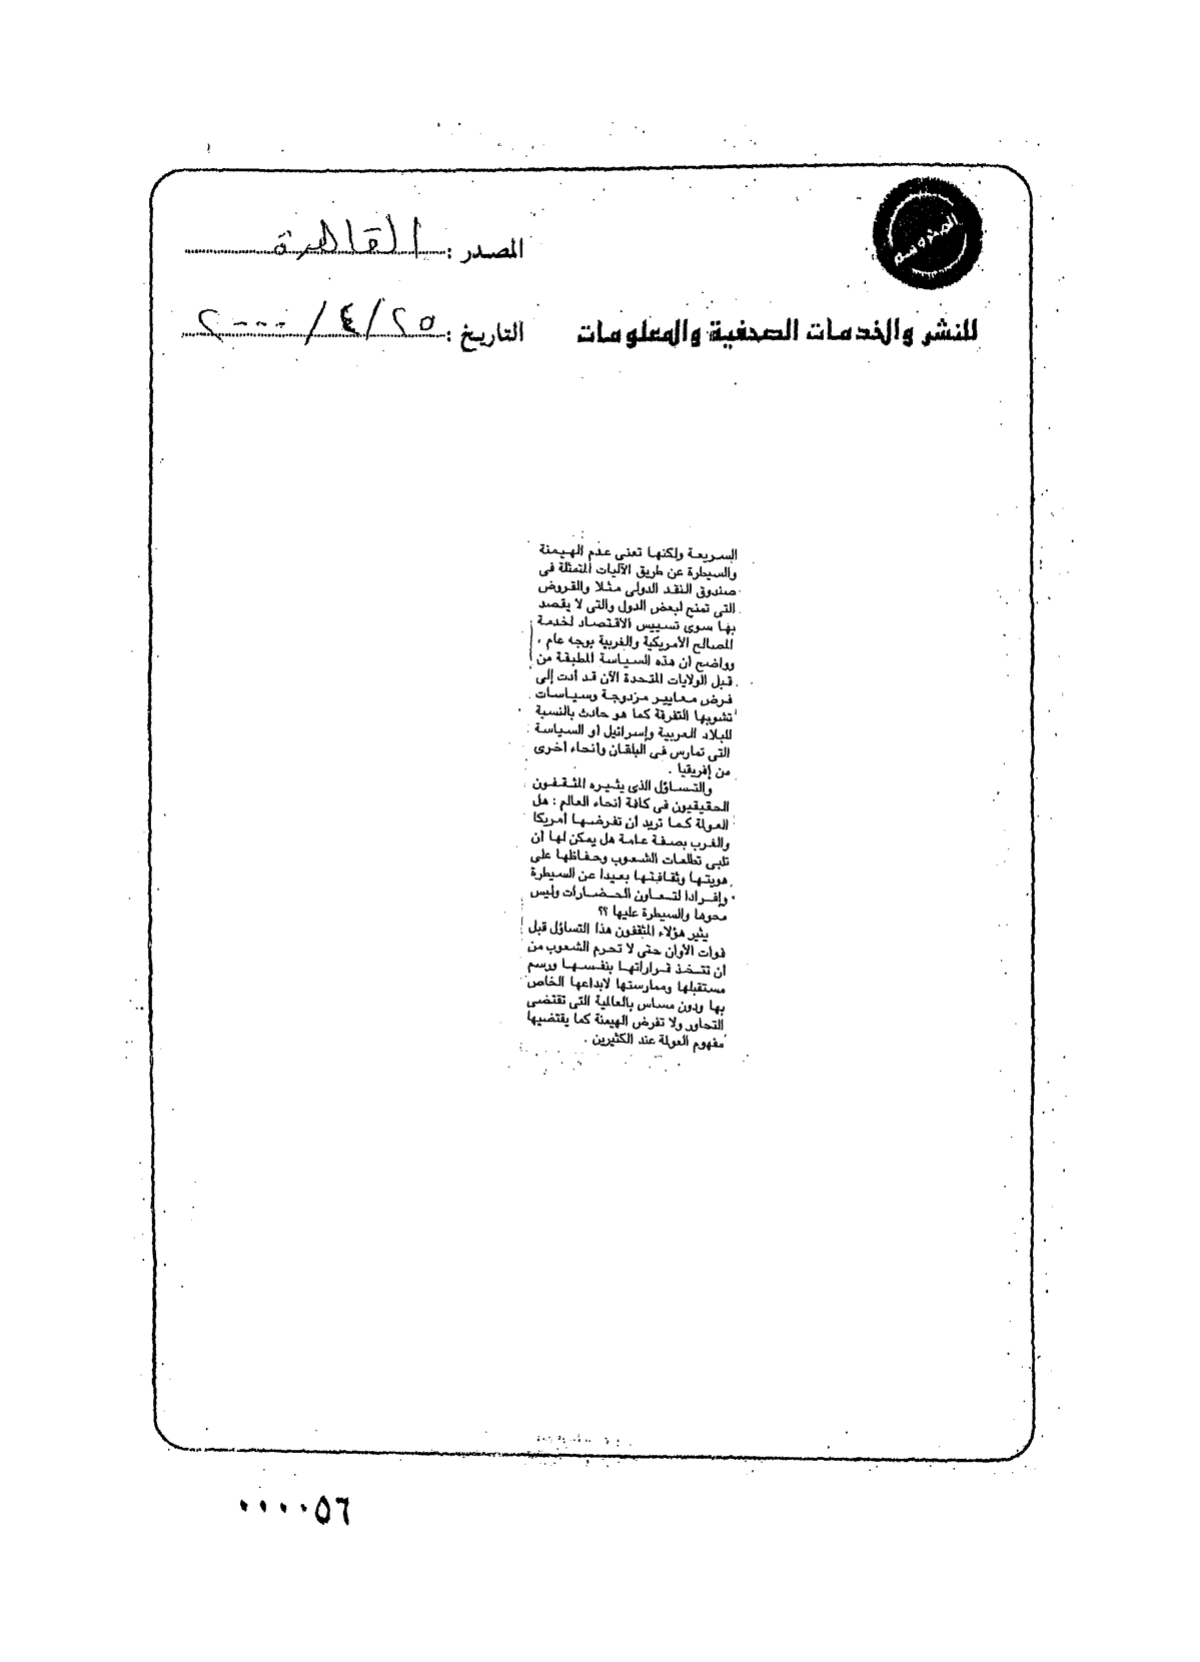 المصدر : القاهرة
المحروسة
للنشر والخدمات الصحفية والمعلومات
التاريخ : ٢٥/٤/٢٠٠٠
السريعة ولكنها تعنى عدم الهيمنة
والسيطرة عن طريق الآليات المتمثلة فى
صندوق النقد الدولى مثلا والقروض
التى تمنح لبعض الدول والتى لا يقصد
بها سوى تسييس الاقتصاد لخدمة
المصالح الأمريكية والغربية بوجه عام ،
وواضح أن هذه السياسة المطبقة من
قبل الولايات المتحدة الآن قد أدت إلى
فرض معايير مزدوجة وسياسات
تشوبها التفرقة كما هو حادث بالنسبة
للبلاد العربية وإسرائيل أو السياسة
التى تمارس فى البلقان وأنحاء أخرى
من إفريقيا .
والتساؤل الذى يثيره المثقفون
الحقيقيون فى كافة أنحاء العالم : هل
العولة كما تريد أن تفرضها أمريكا
والغرب بصفة عامة هل يمكن لها أن
تلبى تطلعات الشعوب وحفاظها على
هويتها وثقافتها بعيدا عن السيطرة
وإفرادا لتعاون الحضارات وليس
محوها والسيطرة عليها ؟؟
يثير هؤلاء المثقفون هذا التساؤل قبل
فوات الأوان حتى لا تحرم الشعوب من
أن تتخذ قراراتها بنفسها ورسم
مستقبلها وممارستها لابداعها الخاص
بها ودون مساس بالعالمية التى تقتضى
التحاور ولا تفرض الهيمنة كما يقتضيها
مفهوم العولة عند الكثيرين .
٠٠٠٠٥٦